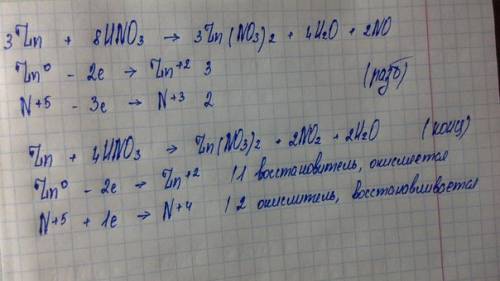 3Zn + 8HNO3 → 3Zn(NO3)2 + 4H2O + 2NO
Zn0 - 2e → Zn+2 3 (разб)
N+5 - 3e → N+3 2
Zn + 4HNO3 → Zn(NO3)2 + 2NO2 + 2H2O (конц)
Zn0 - 2e → Zn+2 | 1 восстановитель, окисляется
N+5 + 1e → N+4 | 2 окислитель, восстанавливается